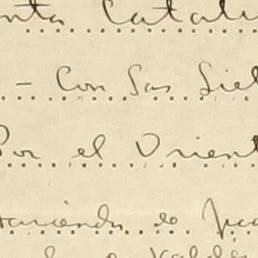 nta Catali
- Con Sas Siet
Por el Orient
Hacienda de
de Valdes